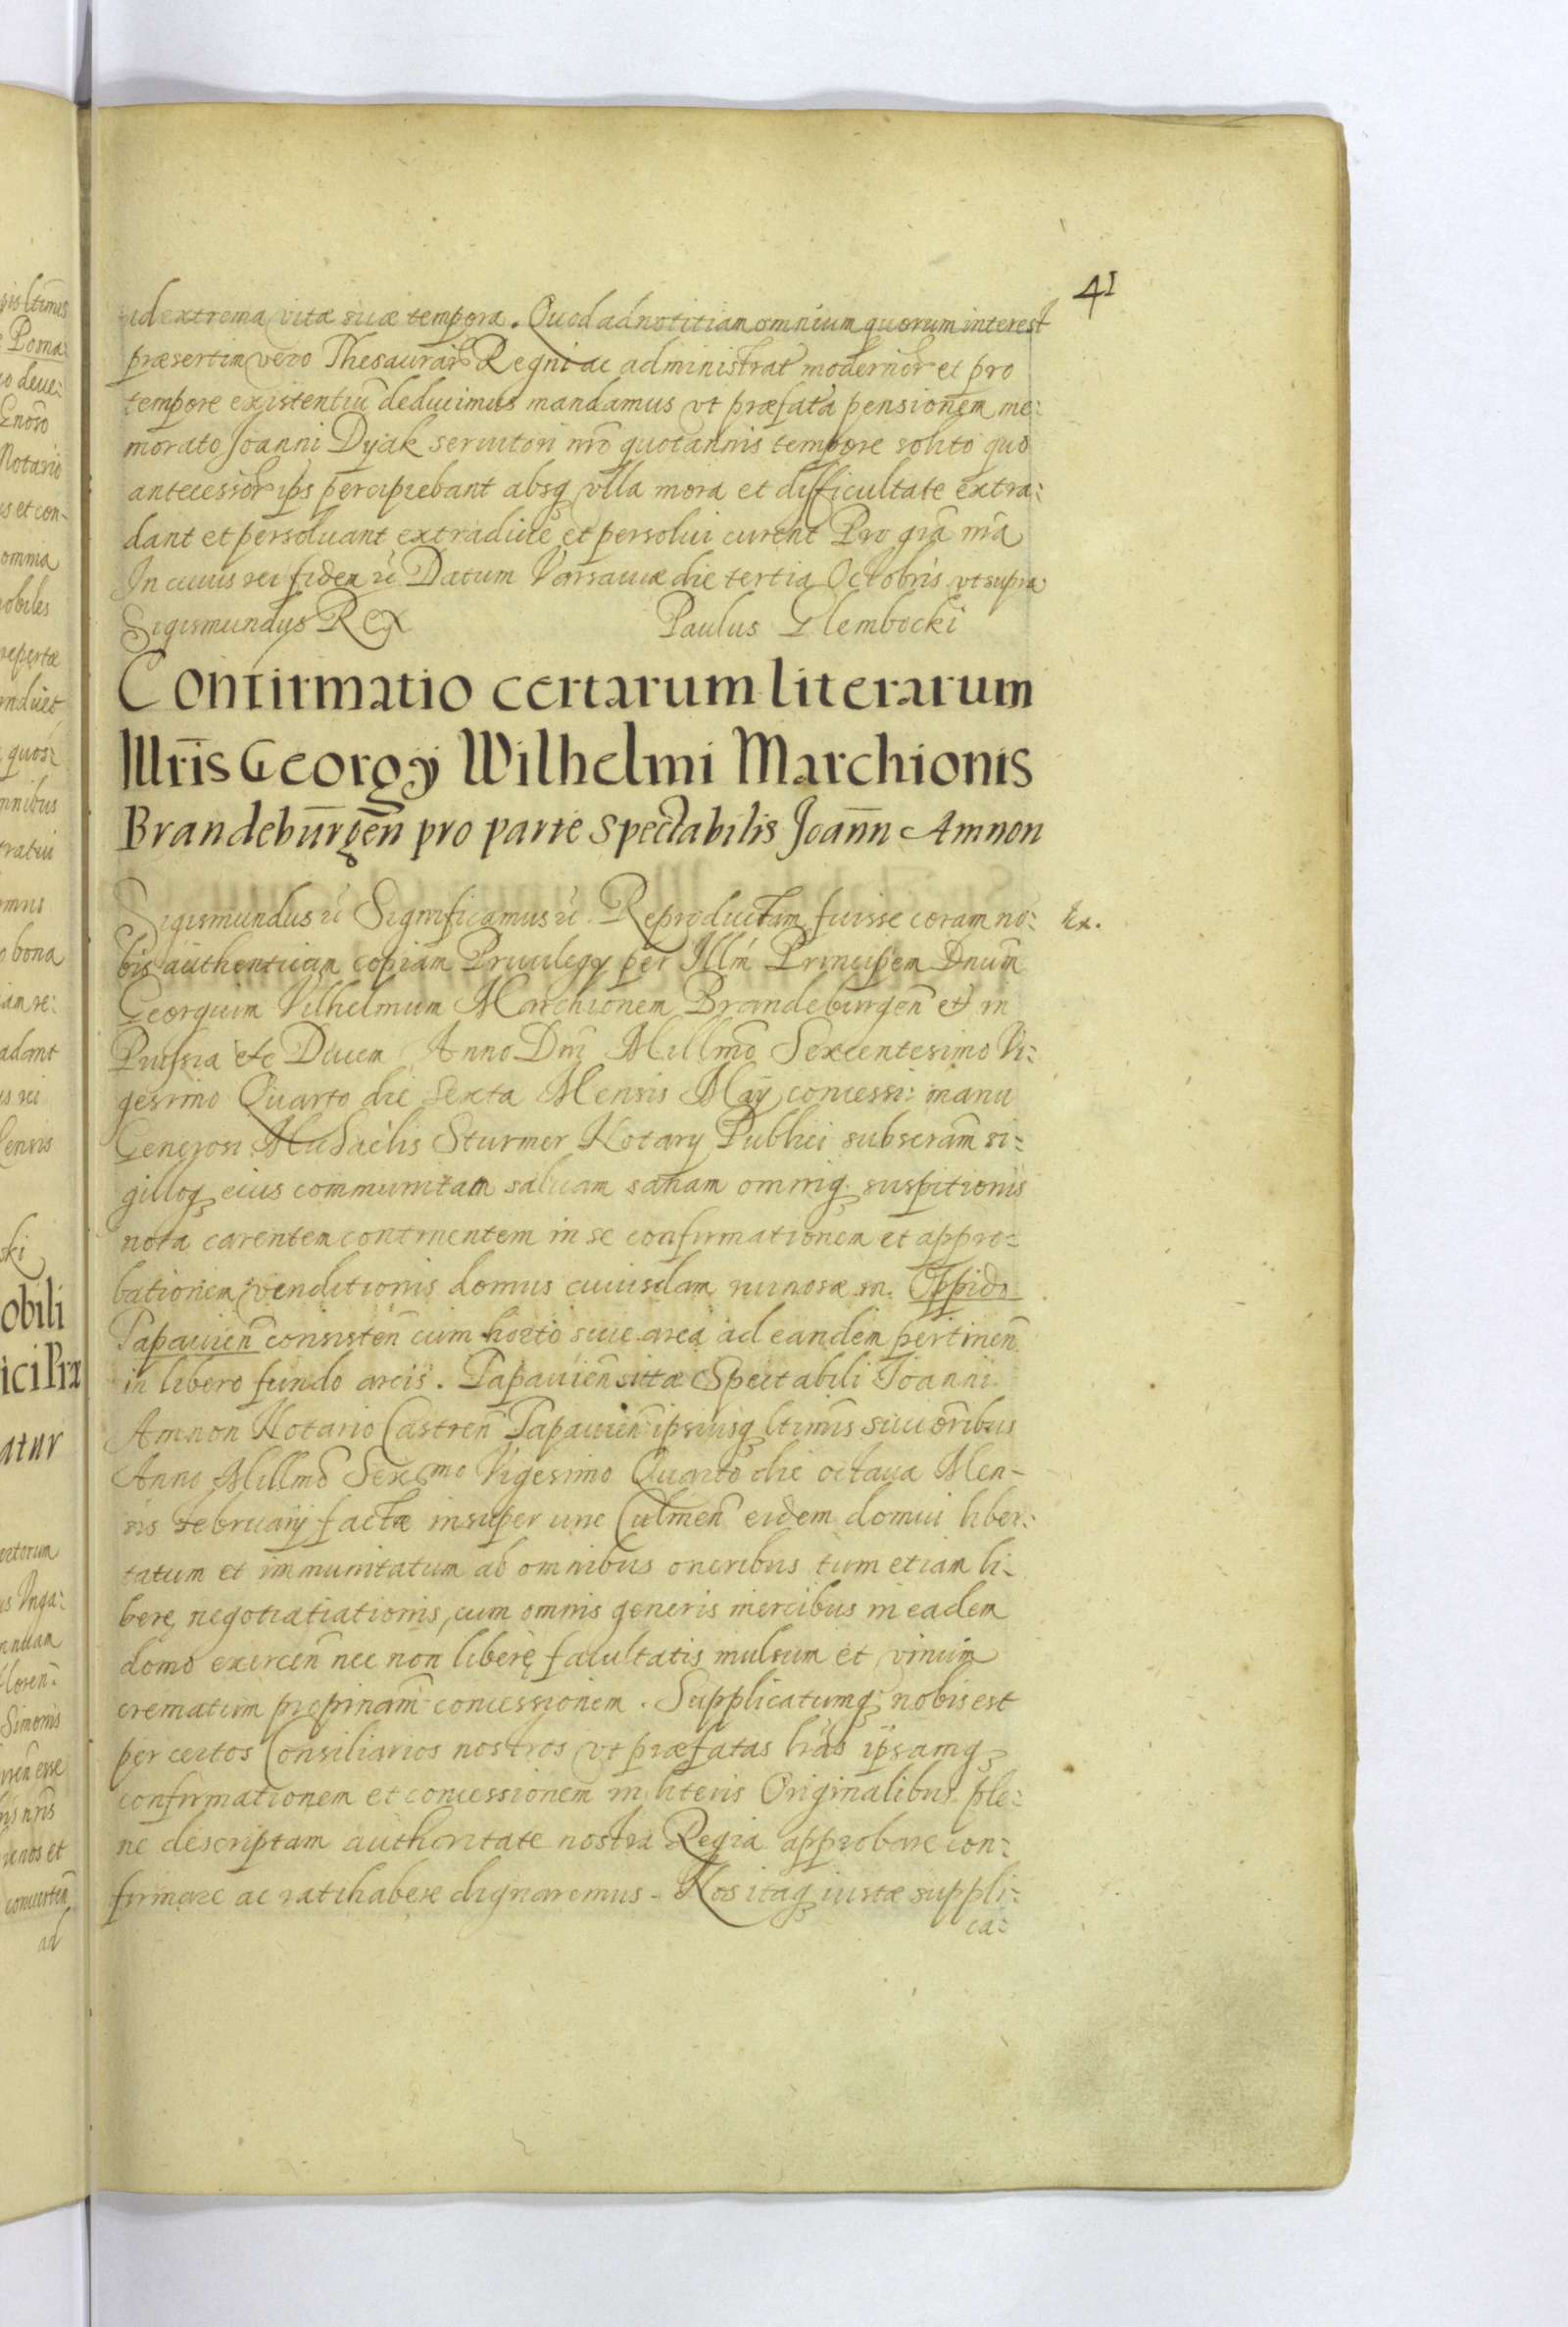 41
ad extrema vitæ suæ tempora. Quod ad notitiam omnium quorum interest
præsertim vero Thesaurar Regni ac administrat modernor et pro
tempore existentiū deducimus mandamus vt præfata pensionem me:
morato Joanni Dyak seruitori nro quotannis tempore solito quo
antecessor ips percipiebant absq vlla mora et difficultate extra:
dant et persoluant extradiue et persolui curent Pro gra nra
In cuius rei fidem Datum Varsauiæ die tertia Octobris vt supra
Sigismundus Rex Paulus Glembocki
Confirmatio certarum literarum
Illris Georgy Wilhelmi Marchionis
Brandeburgen pro parte spectabilis Joann Amnon
Sigismundus Significamus Reproductam fuisse coram no:
bis authenticam copiam Priuilegy per Illm Principem Dnum
Georgium Vilhelmum Marchionem Brandeburgen et in
Prussia etc Ducem Anno Dni Millmo Sexcentesimo Vi:
gesimo Quarto die sexta Mensis May concessi: manu
Generosi Michaelis Sturmer Notary Publici subscram si:
gilloq eius communitam saluam sanam omniq suspitionis
nota carentem continentem in se confirmationem et appro:
bationem venditionis domus cuiusdam ruinosæ in Oppido
Papauien consisten cum horto siue area ad eandem pertinen
in libero fundo arcis. Papauien sitæ Spectabili Joanni
Amnon Notario Castren Papauien ipsiusq ltimis succoribus
Anno Millmo Sexcmo Vigesimo Quarto die octaua Men-
sis February factæ insuper iure Culmen eidem domui liber:
tatum et immunitatum ab omnibus oneribus tum etiam li:
bere negotiatiationis, cum omnis generis mercibus in eadem
domo exercen nec non liberę facultatis mulsum et vinum
crematum propinam concessionem. Supplicatumq nobis est
per certos Consiliarios nostros vt præfatas lras ipsamq
confirmationem et concessionem in literis Originalibus ple:
ne descriptam authoritate nostra Regia approbare con:
firmare ac ratihabere dignaremus. Nos itaq iustæ suppli:
ca: